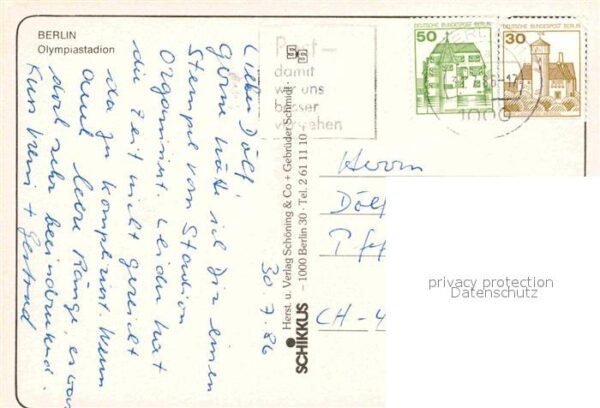 BERLIN
Olympiastadion
Lieber Dölf,
gerne hätte ich Dir einen
Stempel vom Stadion
organisiert. Leider hat
die Zeit nicht gereicht
da zu kompliziert. Wenn
auch leere Ränge, es war
doch sehr beeindruckend.
Kuss + Gertrud
30.7.86
SCHIKKUS
Herst. u. Verlag Schöning & Co + Gebrüder Schmidt
– 1000 Berlin 30 · Tel. 2 61 11 10
Post-
damit
wir uns
besser
verstehen
50
DEUTSCHE BUNDESPOST BERLIN
30
DEUTSCHE BUNDESPOST BERLIN
1000
Herrn
Dölf
CH-4
privacy protection
Datenschutz